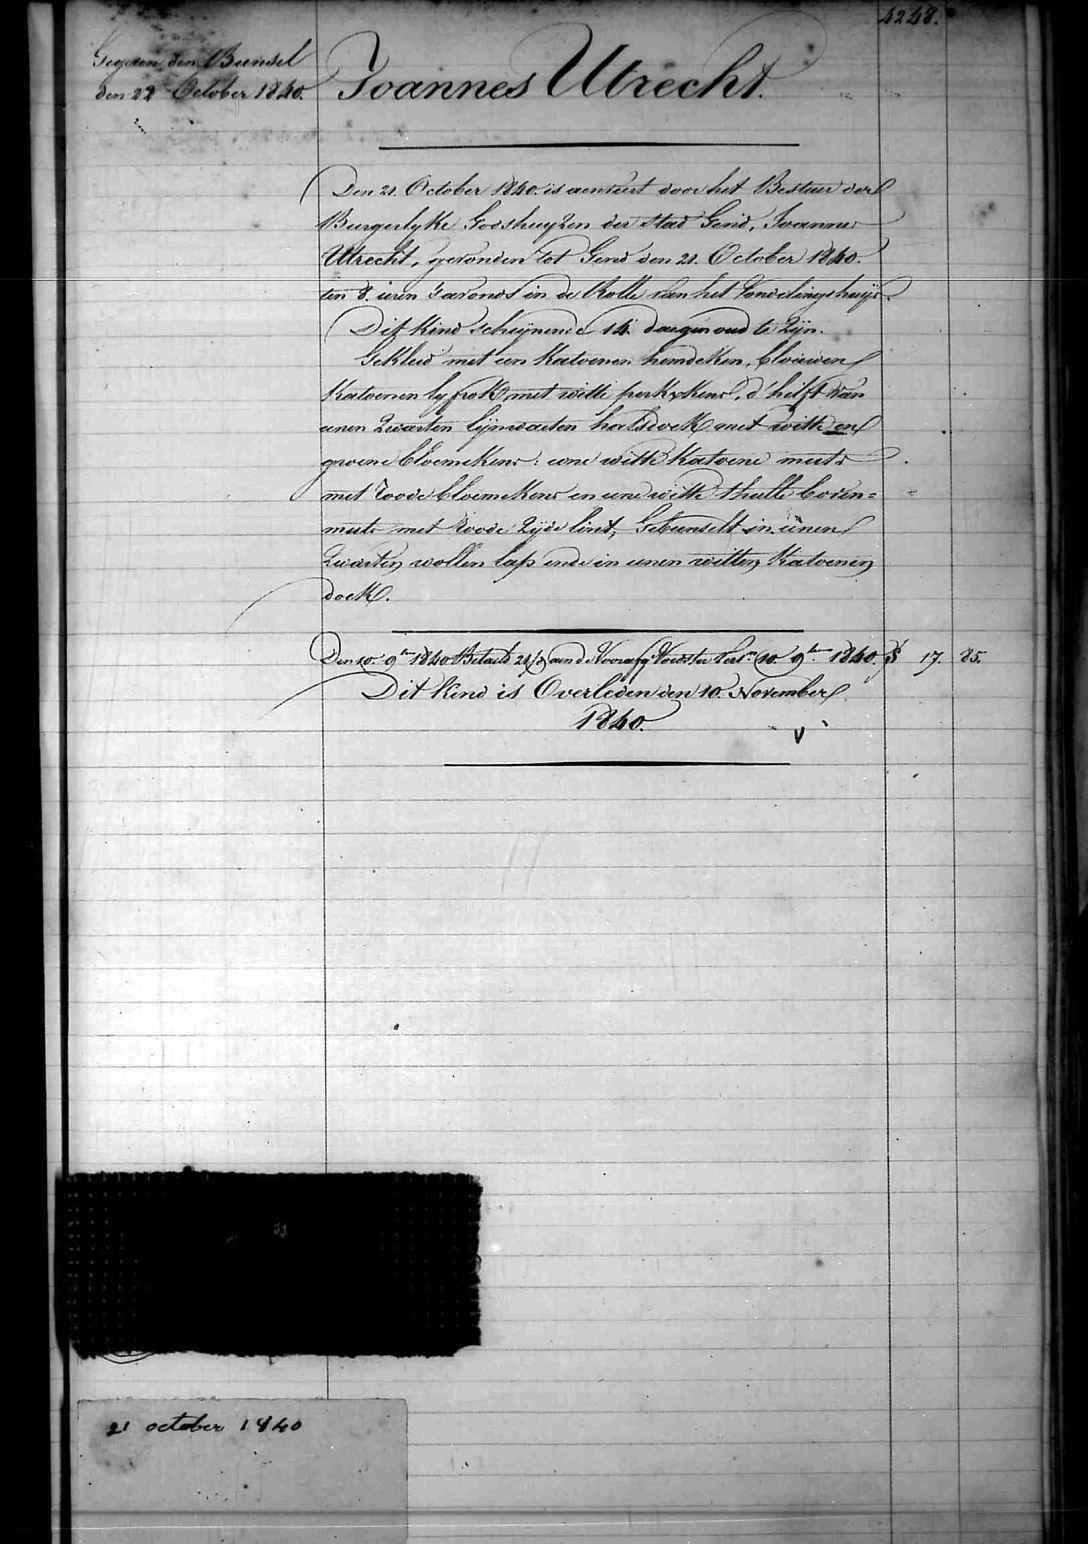 4248.
Gegeven den Bunsel
den 22 October 1840.
Joannes Utrecht.
Den 21. October 1840. is aenveert door het Bestuer der
Burgerlyke Godshuyzen der stad Gend, Joannes
Utrecht, gevonden tot Gend den 21. October 1840.
ten 8. uren s'avonds in de Rolle van het Vondelingshuijs.
Dit kind schijnende 14. daegen oud te Zijn.
Gekleed met een Katoenen hemdeken, blouwen
Katoenen lyfrok met witte perkxkens, d'helft van
eenen Zwarten lijnwaeten halsdoek met witte en
groene bloemekens: eene witte Katoene muts
met roode bloemekens en eene witte thulle boven=
muts met roode Zijde lint, Gebunselt in eenen
Zwarten wollen lap ende in eenen witten Katoenen
doek.
Den 10. 9ber 1840 Betaeld aen de Voedster 10. 9ber 1840. 17. 85.
Dit Kind is Overleden den 10. November
1840.
21 october 1840